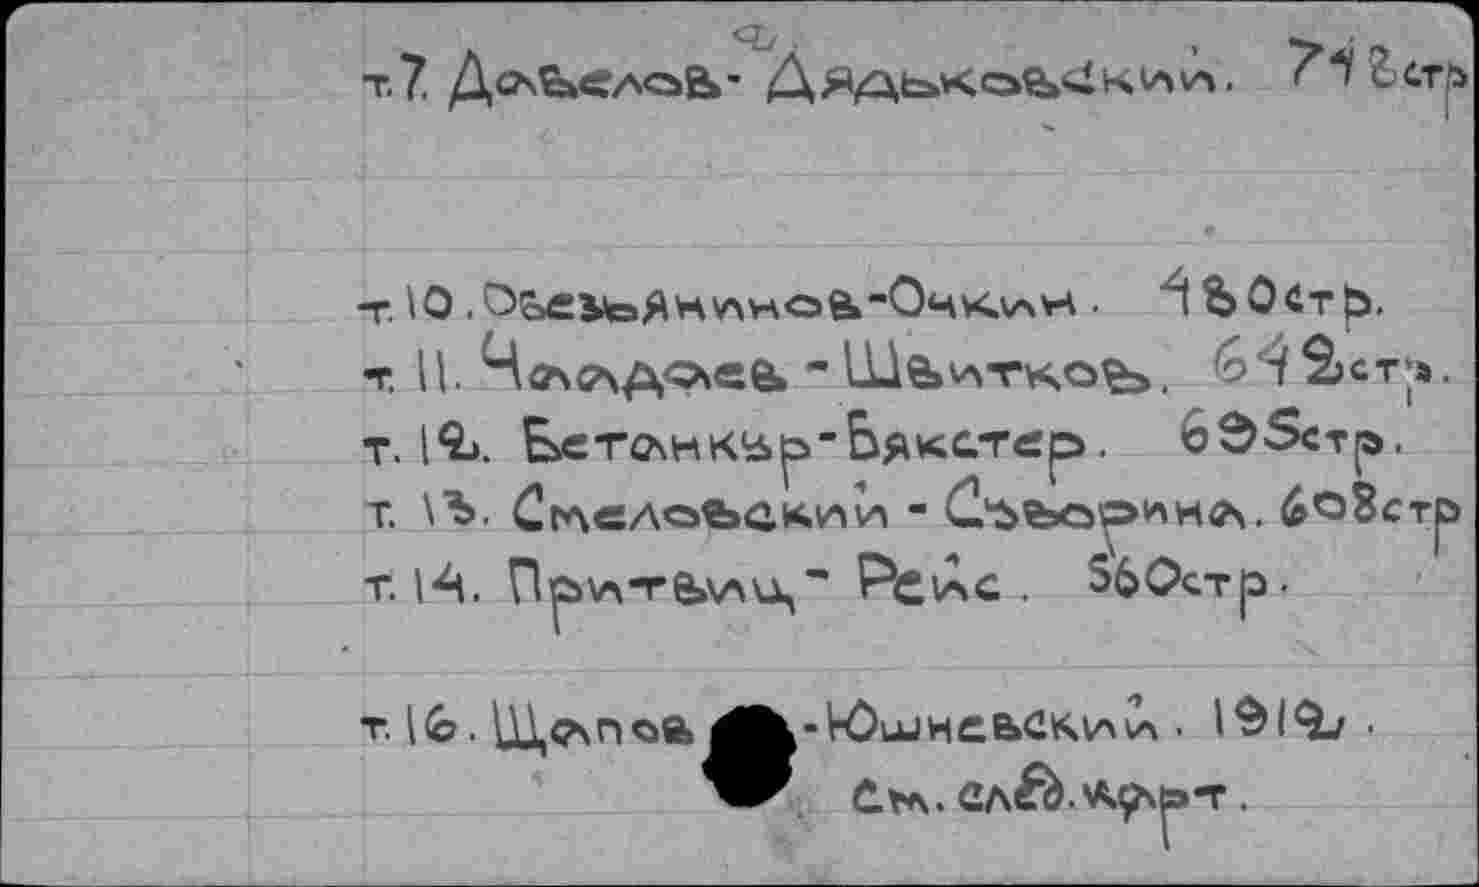 т.7. Давелов-Дядьковский. 742стр
т.10. Обезьянинов-Очкин. 480стр.
т.11. Чаадаев-Швитков. 642стр.
т.12. Бетанкур-Бякстер. 695стр.
т.13. Смеловский-Суворина. 608стр
т.14. Притвиц-Рейс. 560стр.
т.16. Щапов-Юшневский. 1912.
См. след. карт.